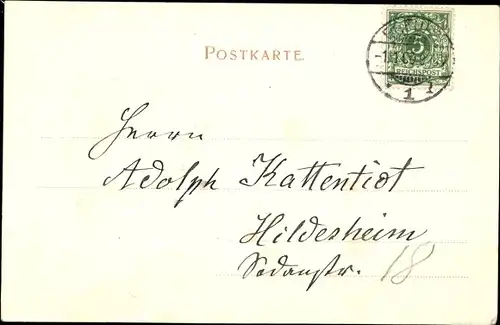 POSTKARTE.
5
1
Herrn
Adolph Kattentidt
Hildesheim
Sedanstr. 18